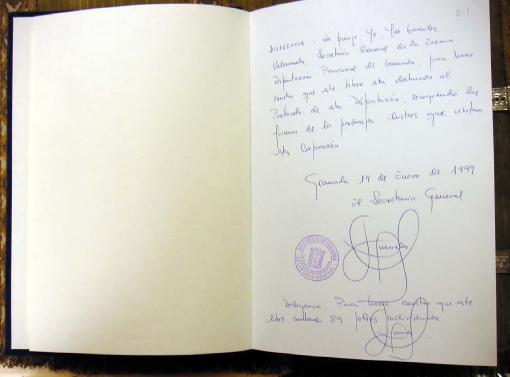 001
DILIGENCIA, la pongo Yo,
Valenzuela, Secretario General de la Excma.
Diputación Provincial de Granada, para hacer
constar que este libro está destinado al
Protocolo de esta Diputación, recogiendo las
firmas de los personajes ilustres que visitan
esta Corporación
Granada 19 de Enero de 1999
El Secretario General
Diligencia. Para hacer constar que este
libro contiene 89 folios